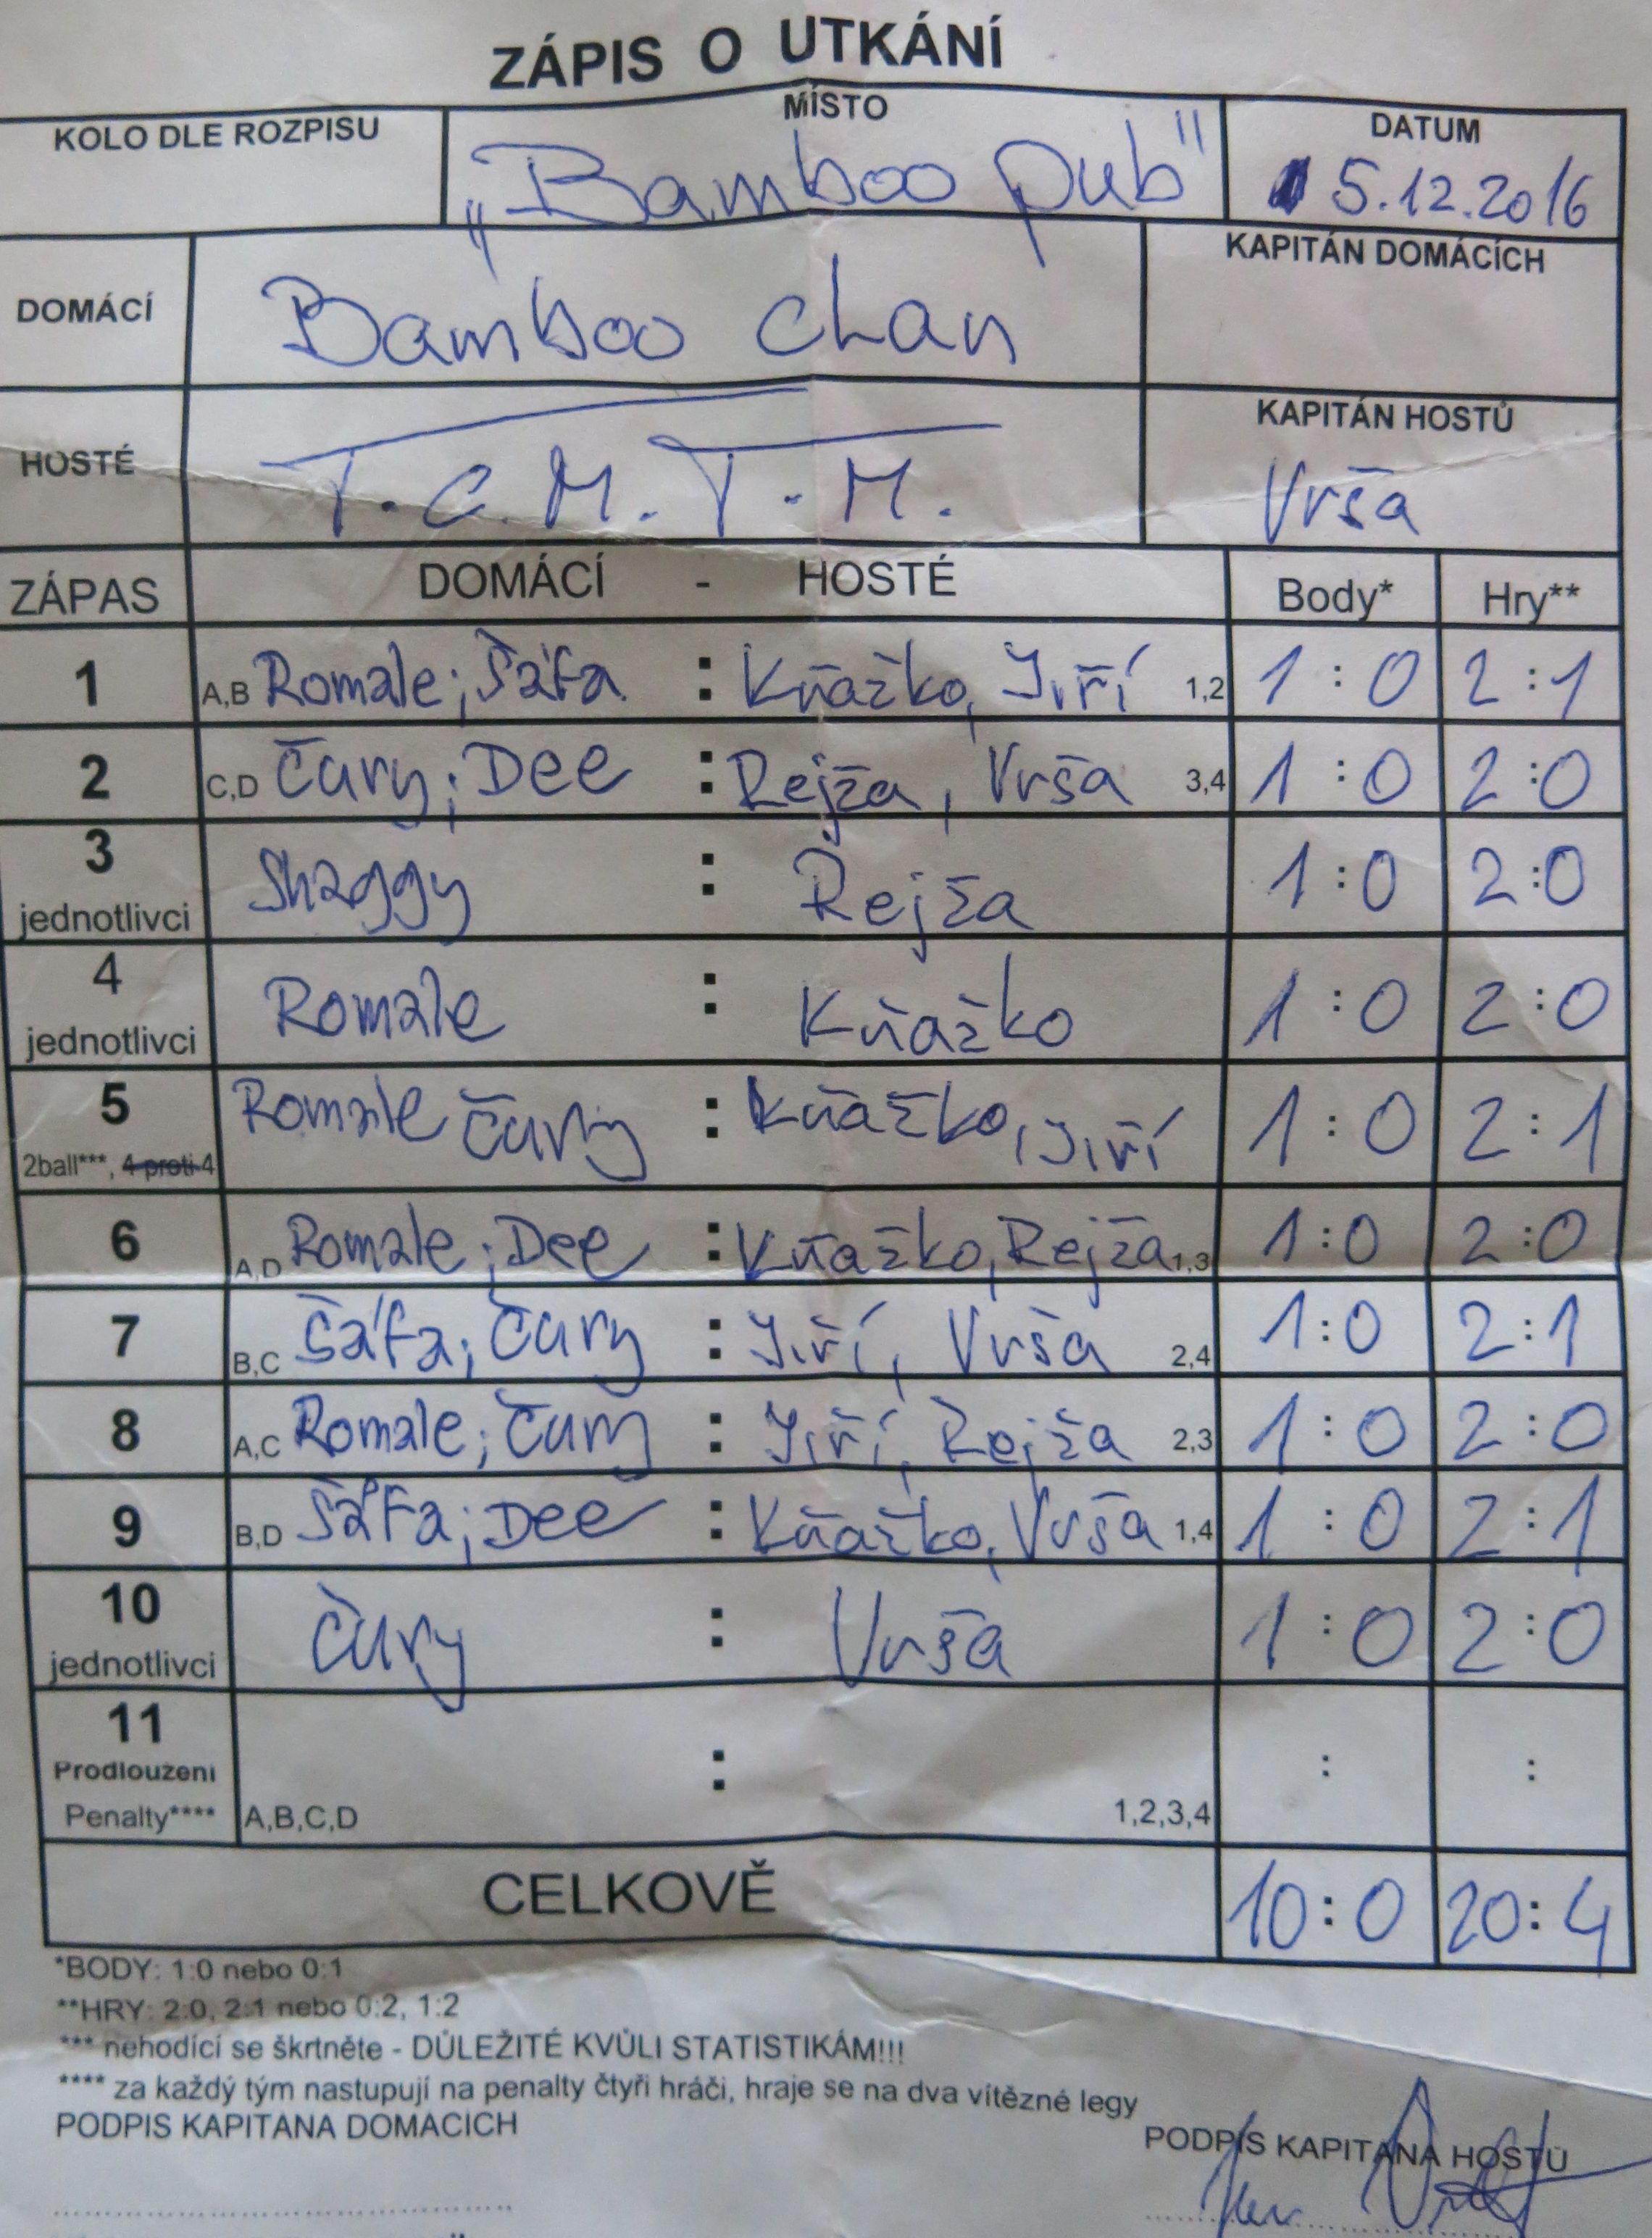 ZÁPIS O UTKÁNÍ
KOLO DLE ROZPISU MÍSTO DATUM
„Bamboo pub" 5.12.2016
DOMÁCÍ Bamboo chan KAPITÁN DOMÁCÍCH
HOSTÉ T.C.M.T.M. KAPITÁN HOSTŮ
Vrša
ZÁPAS DOMÁCÍ - HOSTÉ Body* Hry**
1 A,B Romale; Šáfa : Kňažko, Jiří 1,2 1:0 2:1
2 C,D Čury; Dee : Rejža, Vrša 3,4 1:0 2:0
3 jednotlivci Shaggy : Rejža 1:0 2:0
4 jednotlivci Romale : Kňažko 1:0 2:0
5 Romale Čury : Kňažko, Jiří 1:0 2:1
2ball***, 4 proti 4
6 A,D Romale; Dee : Kňažko, Rejža 1,3 1:0 2:0
7 B,C Šáfa; Čury : Jiří, Vrša 2,4 1:0 2:1
8 A,C Romale; Čury : Jiří, Rejža 2,3 1:0 2:0
9 B,D Šáfa; Dee : Kňažko, Vrša 1,4 1:0 2:1
10 jednotlivci Čury : Vrša 1:0 2:0
11 : : :
Prodloužení
Penalty**** A,B,C,D 1,2,3,4
CELKOVĚ 10:0 20:4
*BODY: 1:0 nebo 0:1
**HRY: 2:0, 2:1 nebo 0:2, 1:2
*** nehodící se škrtněte - DŮLEŽITÉ KVŮLI STATISTIKÁM!!!
**** za každý tým nastupují na penalty čtyři hráči, hraje se na dva vítězné legy
PODPIS KAPITANA DOMACICH PODPIS KAPITANA HOSTU